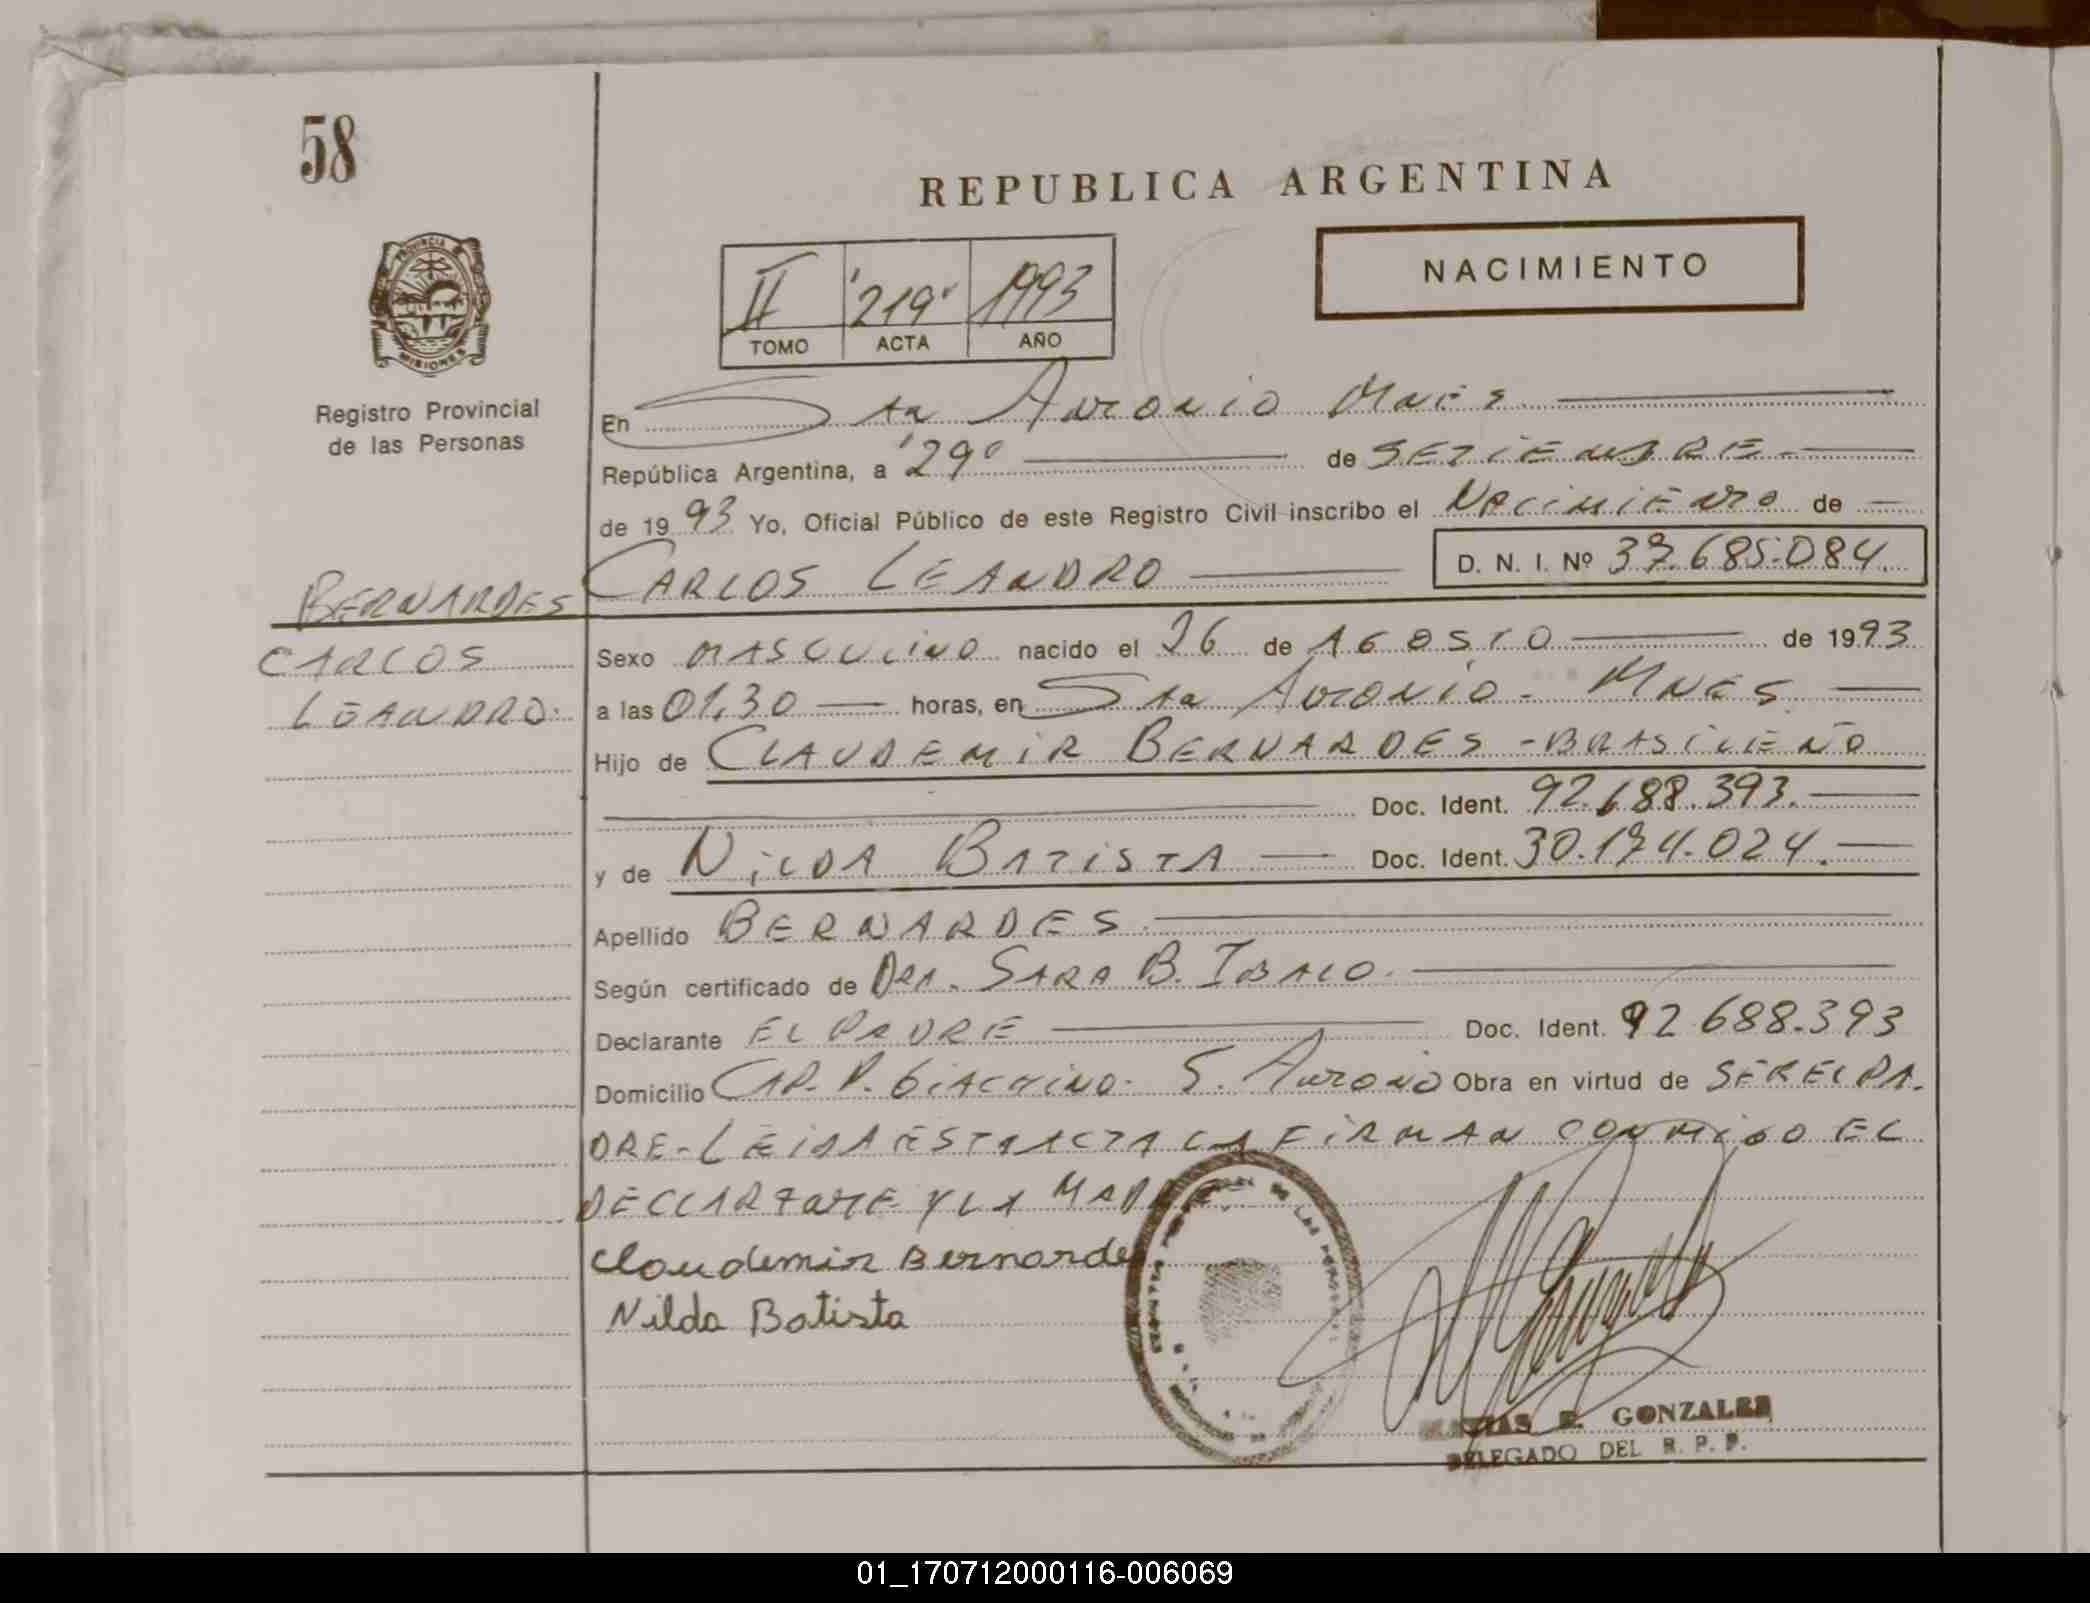 58
REPUBLICA ARGENTINA
NACIMIENTO
II '219' 1993
TOMO ACTA AÑO
PROVINCIA
MISIONES
Registro Provincial
de las Personas
En Sta Antonio Mnes
República Argentina, a '29' de SETIEMBRE
de 1993 Yo, Oficial Público de este Registro Civil inscribo el NACIMIENTO de
CARLOS LEANDRO D. N. I. Nº 37.685.084.
BERNARDES
CARLOS
LEANDRO.
Sexo MASCULINO nacido el 26 de AGOSTO de 1993
a las 01,30 horas, en Sta Antonio - MNES
Hijo de CLAUDEMIR BERNARDES - BRASILEÑO
Doc. Ident. 92.688.393.
y de NILDA BATISTA Doc. Ident. 30.174.024.
Apellido BERNARDES
Según certificado de DRA. SARA B.
Declarante EL PADRE Doc. Ident. 92 688.393
Domicilio CAP. P. GIACHINO. S. Antonio Obra en virtud de SER EL PA-
DRE - LEIDA ESTA ACTA LA FIRMAN CONMIGO EL
DECLARTANTE Y LA MADRE
Claudemir Bernardes
Nilda Batista
E. GONZALEZ
DELEGADO DEL R. P. P.
01_170712000116-006069